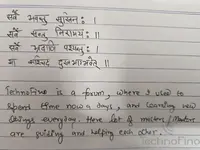 सर्वे भवन्तु सुखिनः ।
सर्वे सन्तु निरामयः ॥
सर्वे भद्राणि पश्यन्तु ।
मा कश्चिद् दुःखभाग्भवेत् ॥
TechnoFino is a forum, where I used to
spend time now a days, and learning new
things everyday. Here lot of
are guiding and helping each other.
TechnoFino